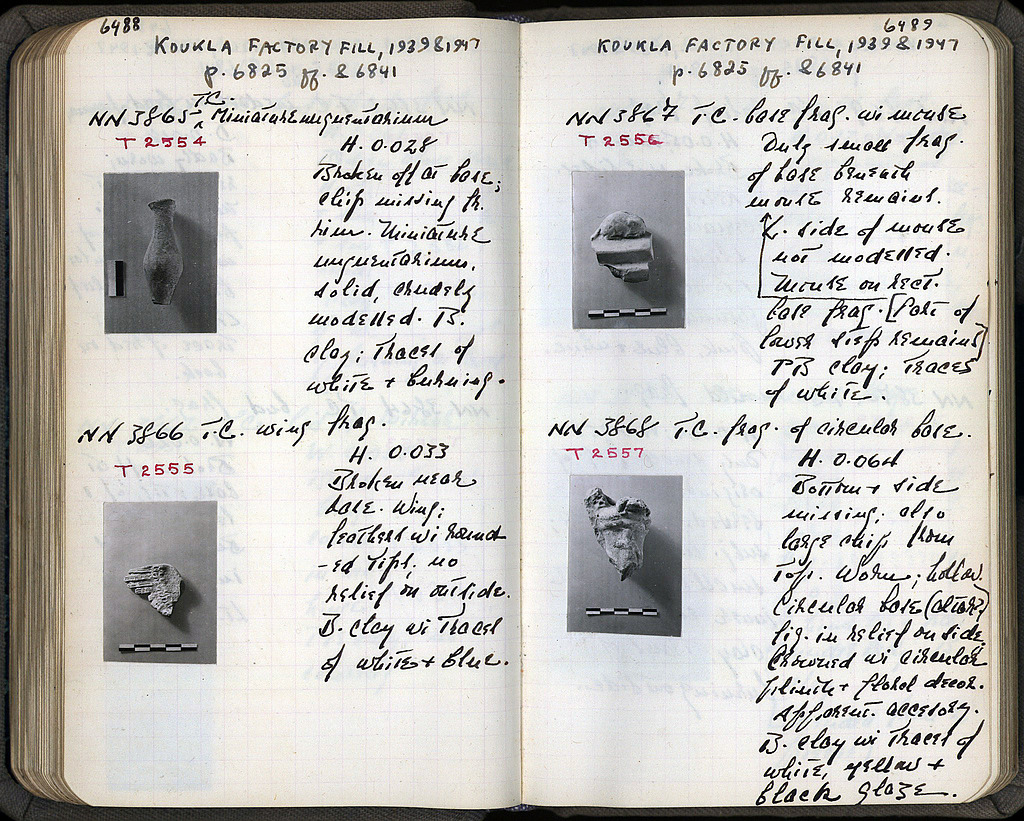 6488
KOUKLA FACTORY FILL, 1939 & 1947
p. 6825 ff. & 6841
T.C.
NN 3865 Miniature unguentarium
T 2554
H. 0.028
Broken off at base;
chip missing fr.
rim. Miniature
unguentarium,
solid, crudely
modelled. B.
clay; traces of
white + burning.
NN 3866 T.C. wing frag.
T 2555
H. 0.033
Broken near
base. Wing;
feathers wi round
-ed tips, no
relief on outside.
B. clay wi traces
of white + blue.
6489
KOUKLA FACTORY FILL, 1939 & 1947
p. 6825 ff. & 6841
NN 3867 T.C. base frag. wi mouse
T 2556
Only small frag.
of base beneath
mouse remains.
L. side of mouse
not modelled.
Mouse on rect.
base frag. [Part of
lower step remains]
PB clay; traces
of white.
NN 3868 T.C. frag. of circular base.
T 2557
H. 0.064
Bottom + side
missing; also
large chip from
top. Worn; hollow.
Circular base (altar?)
fig. in relief on side.
Crowned wi circular
plinth + floral decor.
Apparent. accesory.
B. clay wi traces of
white, yellow +
black glaze.